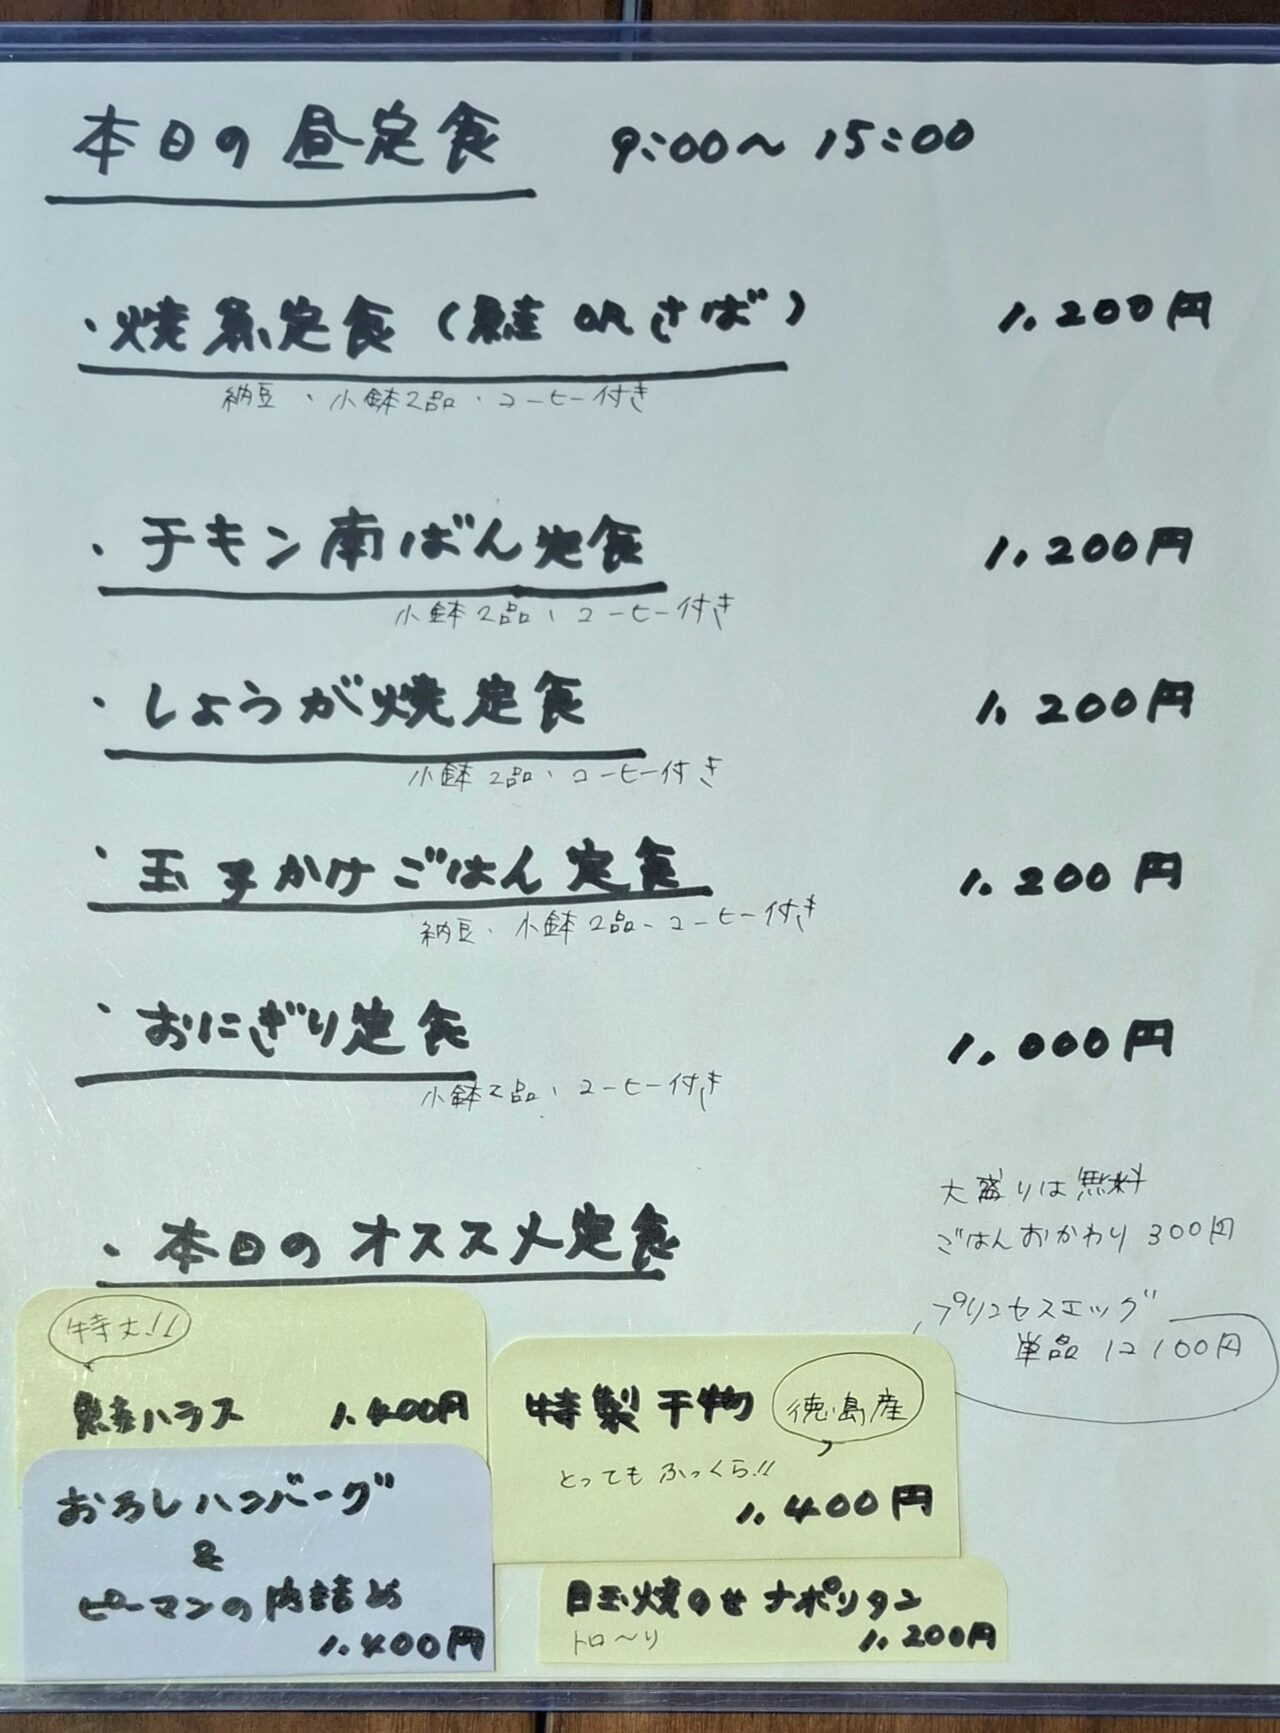 本日の昼定食 9:00〜15:00
・焼魚定食(鮭 or さば) 1.200円
納豆・小鉢2品・コーヒー付き
・チキン南ばん定食 1.200円
小鉢2品、コーヒー付き
・しょうが焼定食 1.200円
小鉢2品、コーヒー付き
・玉子かけごはん定食 1.200円
納豆・小鉢2品・コーヒー付き
・おにぎり定食 1.000円
小鉢2品、コーヒー付き
大盛りは無料
ごはんおかわり 300円
・本日のオススメ定食
プリンセスエッグ
単品 1コ100円
特大!!
鮭ハラス 1.400円
特製干物 徳島産
とってもふっくら!!
1.400円
おろしハンバーグ
&
ピーマンの肉詰め
1.400円
目玉焼のせナポリタン
トロ〜リ 1.200円